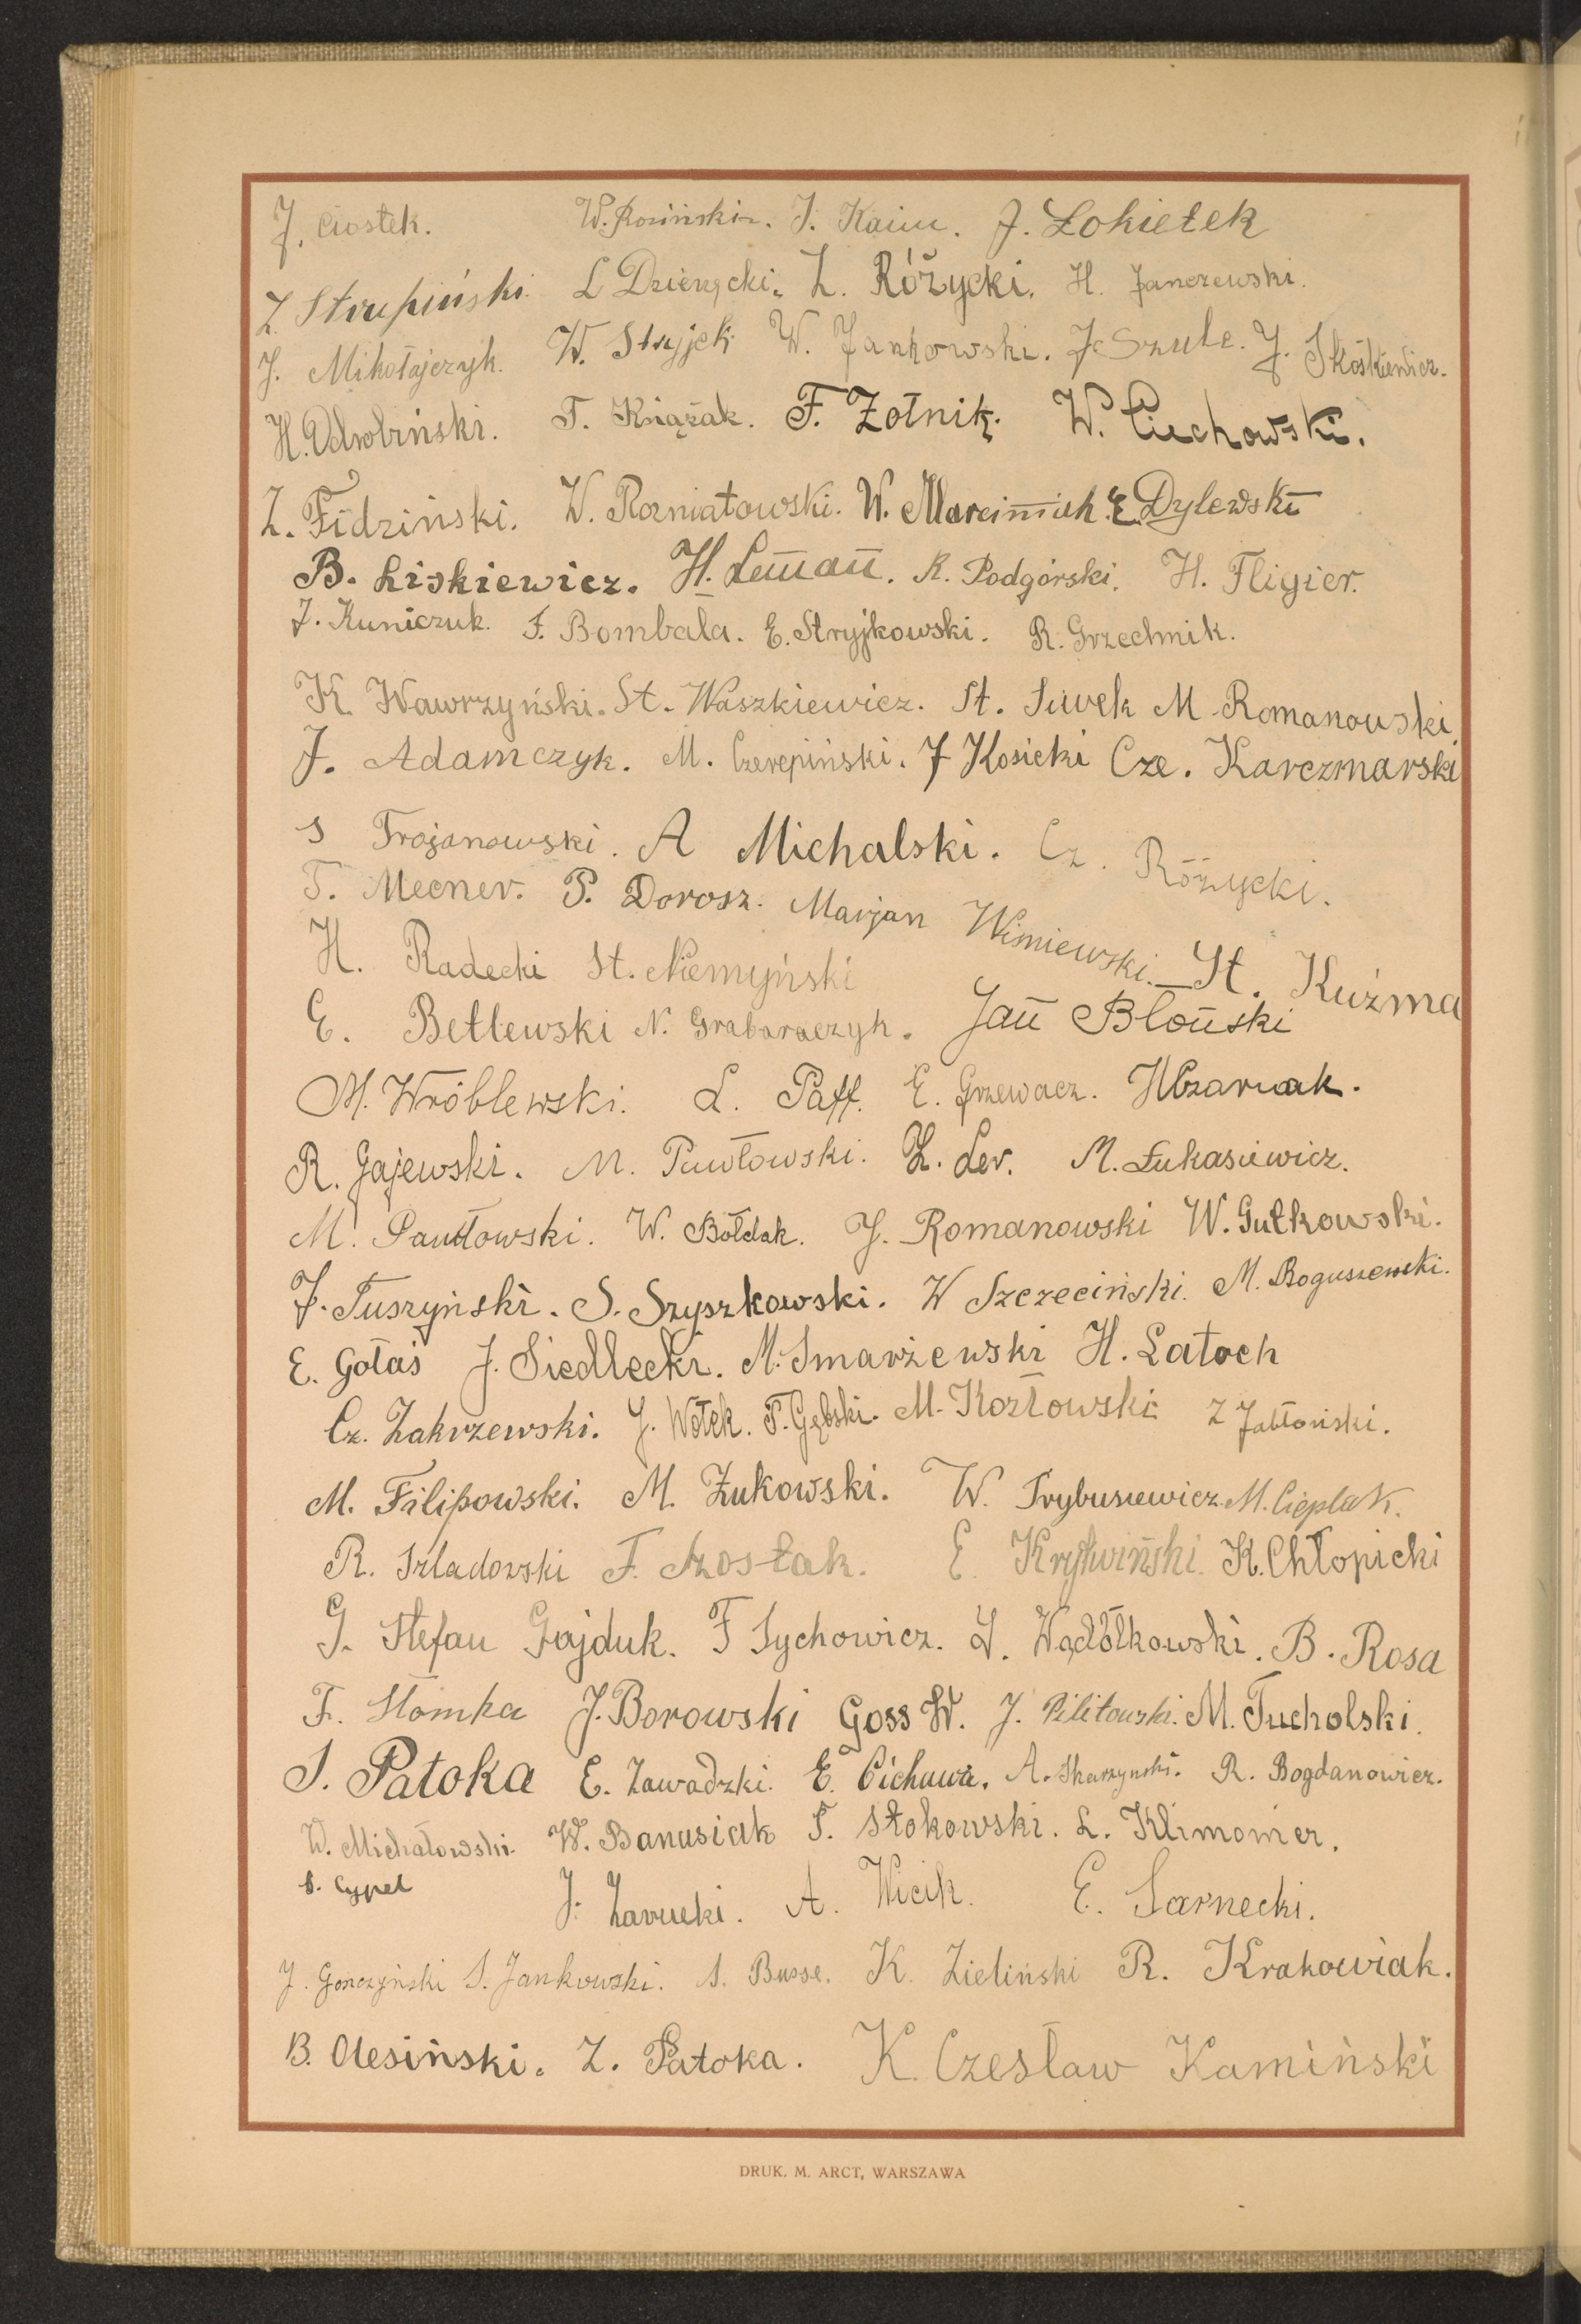 J. Ciostek. W. Rosiński. J. Kaim. J. Łokietek
Z. Strupiński. L Dzierzycki. Z. Różycki. H. Janczewski.
J. Mikołajczyk. W. Stryjek W. Jankowski. J. Szulc. J. Skośkiewicz.
H. Odrobiński. T. Książak. F. Żołnik. W. Ciechowski.
Z. Fidziński. W. Rozniatowski. W. Marciniak. E. Dylewski
B. Liskiewicz. H. Leman. R. Podgórski. H. Fligier.
J. Kuniczuk. F. Bombała. E. Stryjkowski. R. Grzechnik.
K. Wawrzyński. St. Waszkiewicz. St. Siwek M. Romanowski
J. Adamczyk. M. Czerepiński. J Kosicki Cze. Karczmarski
S Trojanowski. A Michalski. Cz. Różycki.
T. Mecner. P. Dorosz. Marjan Wiśniewski. St. Kuźma
H. Radecki St. Niemyński
E. Betlewski N. Grabarczyk. Jan Błoński
M. Wróblewski. L. Paff. E. Grzewacz. H Czarnak.
R. Gajewski. M. Pawłowski. Z. Ler. M. Łukasiewicz.
M. Pawłowski. W. Bołdak. J. Romanowski W. Gutkowski.
J. Tuszyński. S. Szyszkowski. W Szczeciński. M. Boguszewski.
E. Gołaś J. Siedlecki. M. Smarzewski H. Latoch
Cz. Zakrzewski. J. Wołek. T. Gębski. M. Kozłowski Z Jabłoński.
M. Filipowski. M. Żukowski. W. Trybusiewicz. M. Cieplak.
R. Szladowski F. Szostak. E. Krywiński. K. Chłopicki
G. Stefan Gajduk. F Sychowicz. L. Wądołkowski. B. Rosa
F. Słomka J. Borowski Goss W. J. Pilitowski. M. Tucholski.
S. Patoka E. Zawadzki. E. Cichawa. A. Skarzyński. R. Bogdanowicz.
W. Michałowski. W. Banasiak T. Stokowski. L. Klimomer.
S. Cypel J. Zarucki. A. Wicik. E. Sarnecki.
J. Gonczyński S. Jankowski. S. Busse. K. Zieliński R. Krakowiak.
B. Olesiński. Z. Patoka. K. Czesław Kamiński
DRUK. M. ARCT, WARSZAWA